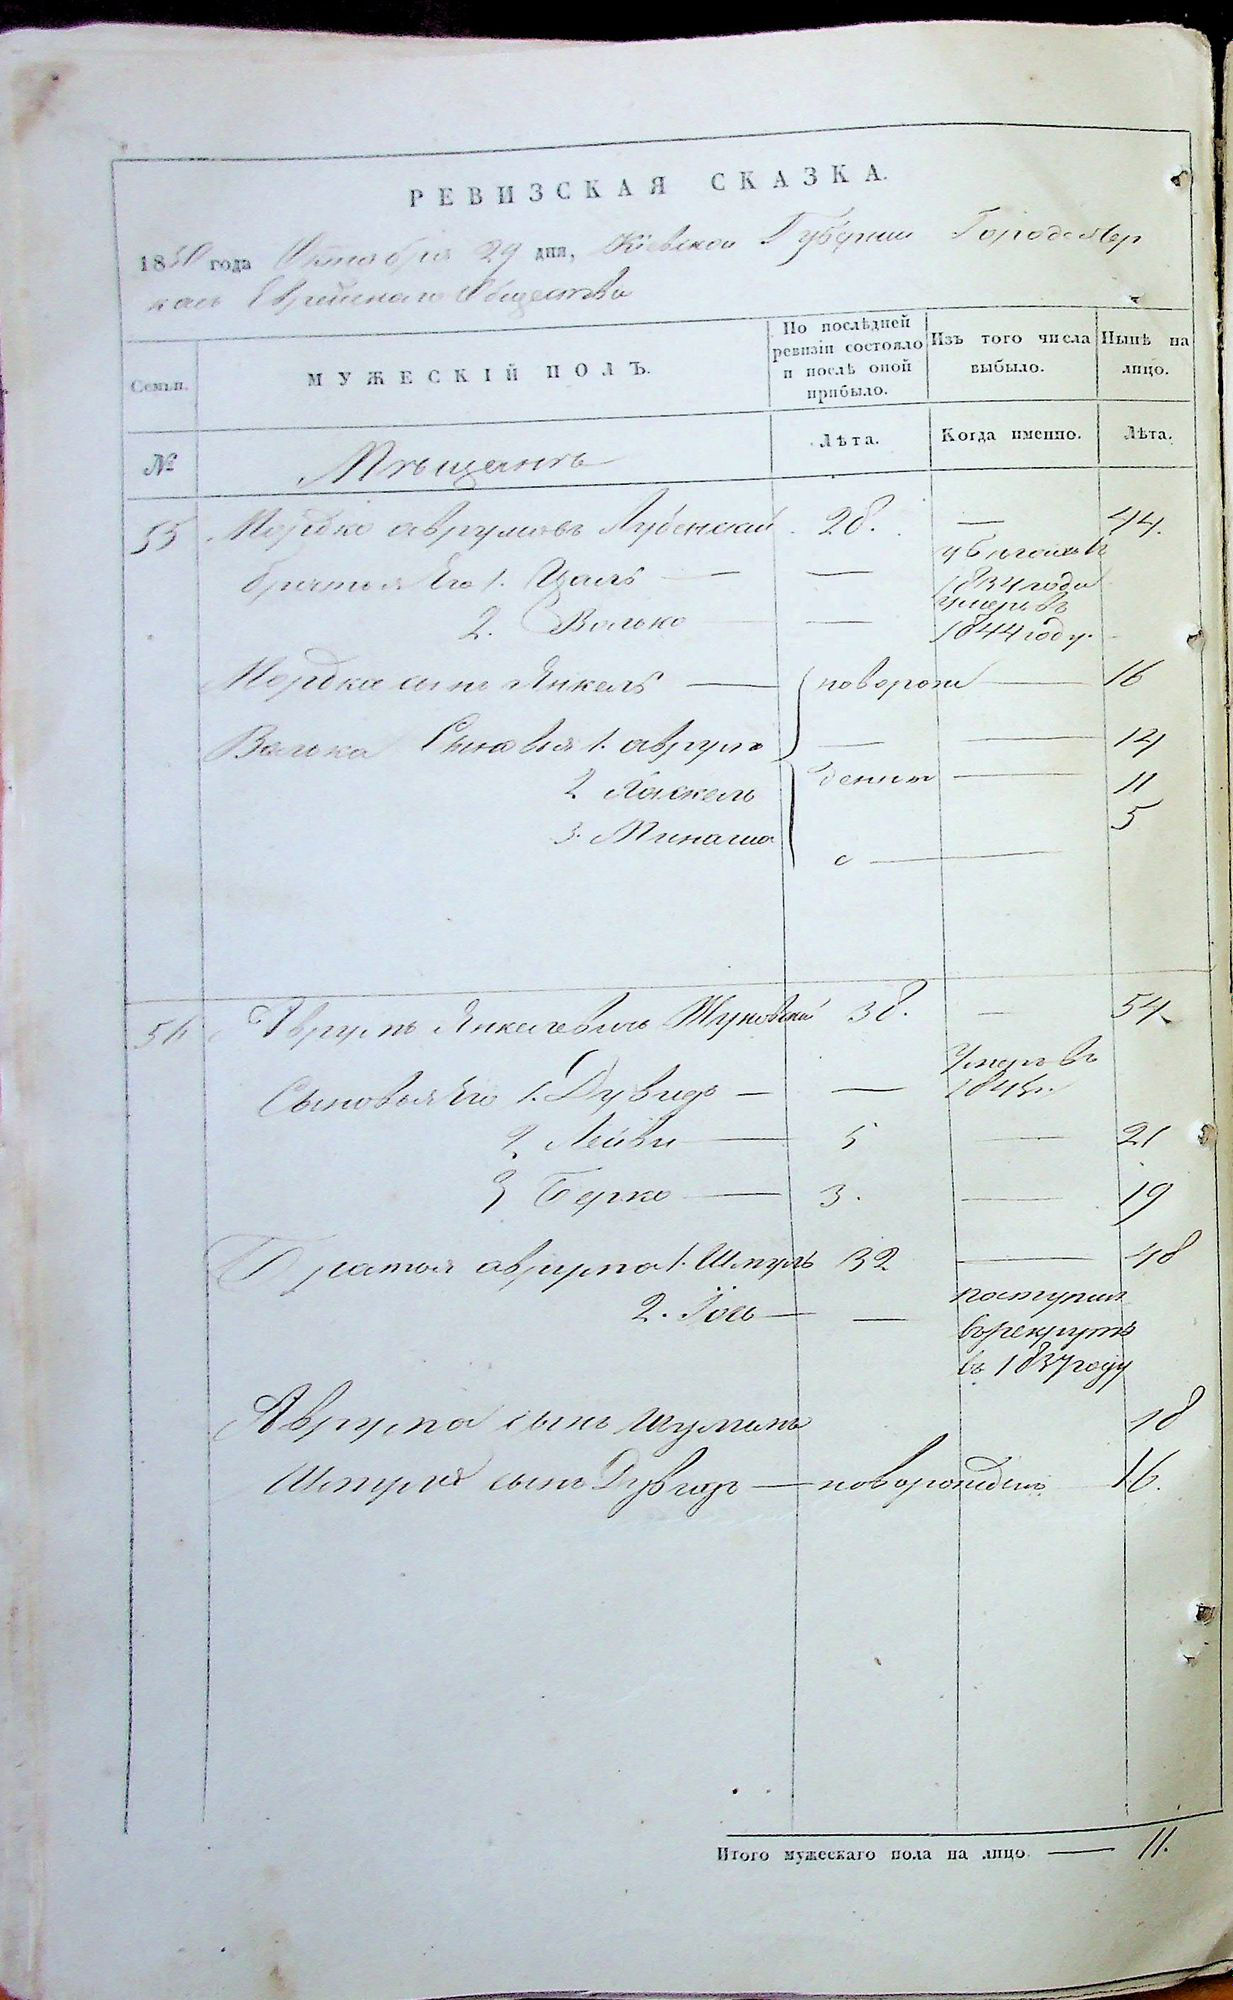 РЕВИЗСКАЯ СКАЗКА.
1850 года Октября 29 дня, Кіевской Губерніи
Еврейскаго Общества
Семьи. МУЖЕСКІЙ ПОЛЪ. По послѣдней ревизіи состояло и послѣ оной прибыло. Изъ того числа выбыло. Нынѣ на лицо.
№ Мѣщанѣ Лѣта. Когда именно. Лѣта.
55 Мордко аврумовъ Лубенский 28. — 44.
братья Его 1. — —
1834 года
2. Волько — — умеръ въ
1844 году.
Мордка сынъ Янкель — новорож — 16
Волька Сыновья 1. аврумъ — — 14
2 Хаскель денны — 11
3. Минаша е — — 5
56 Аврумъ Янкелевичь Жуковский 38. — 54.
Сыновья Его 1. Дувидъ — — умеръ въ
184
2. Лейви — 5 — 21
3 Берко — 3. — 19
Братья аврума 1. Шмуль 32 — 48
2. Іось — — поступил
в рекруты
въ 1837 году
Аврума сынъ 18
Шмуля сынъ Дувидъ — новорожден 16.
Итого мужескаго пола на лицо — 11.